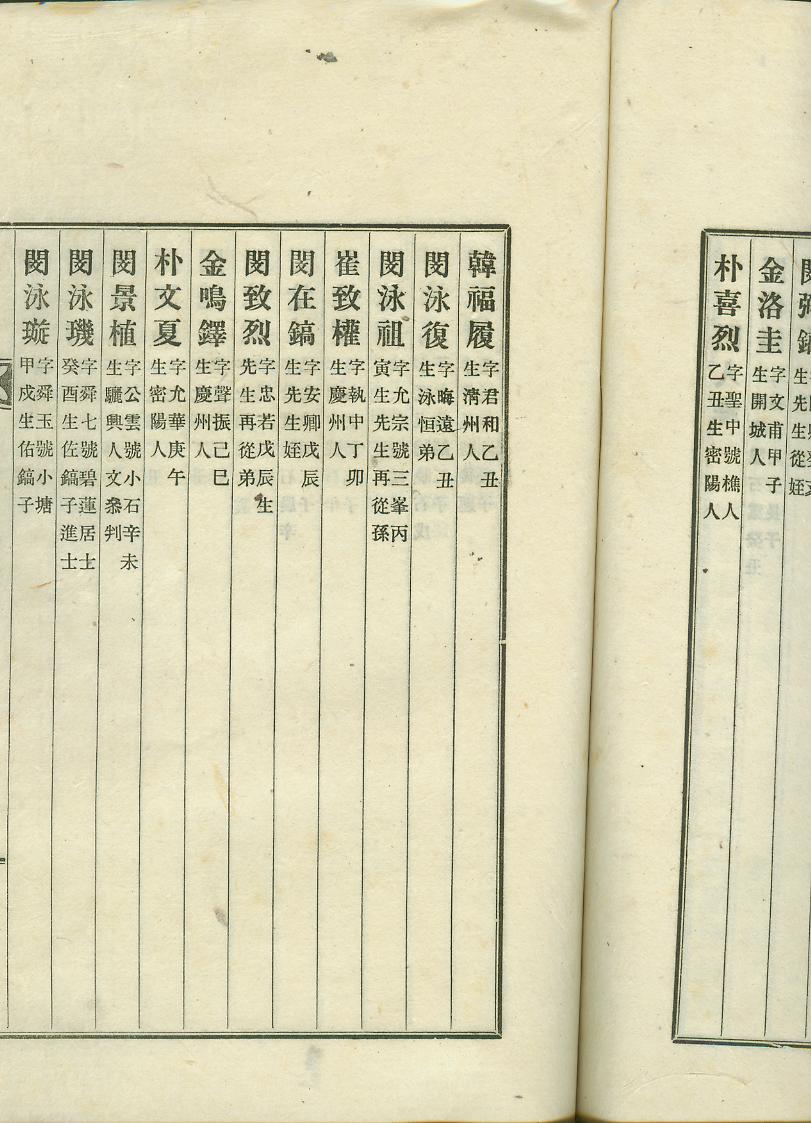 金洛圭 字文甫甲子生開城人
朴喜烈 字聖中號樵人乙丑生密陽人
韓福履 字君和乙丑生淸州人
閔泳復 字晦遠乙丑生泳恒弟
閔泳祖 字允宗號三峯丙寅生先生再從孫
崔致權 字執中丁卯生慶州人
閔在鎬 字安卿戊辰生先生姪
閔致烈 字忠若戊辰生先生再從弟
金鳴鐸 字聲振己巳生慶州人
朴文夏 字允華庚午生密陽人
閔景植 字公雲號小石辛未生驪興人文叅判
閔泳璣 字舜七號碧蓮居士癸酉生佐鎬子進士
閔泳璇 字舜玉號小塘甲戌生佑鎬子